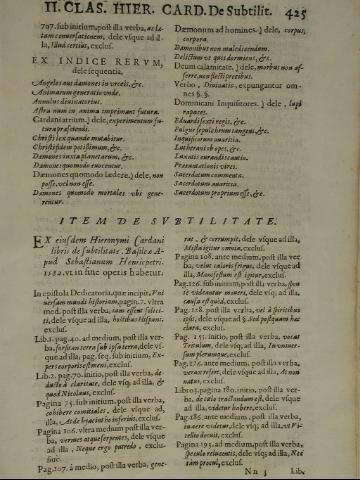 II. CLAS. HIER. CARD. De Subtilit. 425
707. sub initium, post illa verba, ac la-
tam conuersationem, dele vsque ad il-
la, Illud certius, exclus.
EX INDICE RERVM,
dele sequentia,
Angelos aut dæmones in vrceis, &c.
Animarum generatio vnde.
Annulus diuinatorius.
Astra num in anima imprimant futura.
Cardani atrium, ꝫ dele, experimentum fu-
tura prætistendi.
Christi lex quando mutabitur.
Christi fidem potissimum, &c.
Dæmones iuxta planetarum, &c.
Dæmones quomodo euocentur.
Dæmones quomodo lædere, ꝫ dele, non
posse, vel non esse.
Dæmones quomodo mortales vbi gene-
rentur.
Dæmonum ad homines. ꝫ dele, corpus,
corpora.
Dæmonibus non maledicendum.
Delictum vt quis dormiens, &c.
Deum calamitate. ꝫ dele, morbus non af-
ferre, non flecti precibus.
Verbo, Diuinatio, expungantur om-
nes §. §.
Dominicani Inquisitores. ꝫ dele, lupi
rapaces.
Eduardi sexti regis, &c.
Fulgur sepulchrum tangens, &c.
Inquisitorum auaritia.
Lutherani ob opes, &c.
Luxati curandi cautio.
Præcantationis vires.
Sacerdotum commenta.
Sacerdotum auaritia.
Sacerdotum proprium esse, &c.
ITEM DE SVBTILITATE.
EX eiusdem Hieronymi Cardani
libris de subtilitate. Basileæ A-
pud Sebastianum Henricpetri.
1582. vt in fine operis habetur.
In epistola Dedicatoria, quæ incipit, Vni-
uersam mundi historiam, pagin. 7. vltra
med. post illa verba, tam essent solici-
ti, dele vsque ad illa, hostibus Hispani.
exclus.
Lib. 1. pag. 40. ad medium, post illa ver-
ba, forsitan terra sub ista terra, dele vs-
que ad illa, pag. seq. sub initium, Ex-
pers corporis est meni, exclus.
Lib. 2. pag. 70. initio, post illa verba, de-
ducto à claritate, dele vsq; ad illa, &
quod Nicolaus, exclus.
Pagina 74. sub initium, post illa verba,
cohibere comitiales, dele vsque ad,
illa, At de hyacintho inferius. exclus.
Pagina 106. vltra medium post illa ver-
ba, vermes atque serpentes, dele vsque
ad illa, Neque ergo putredo, exclu-
siue.
Pag. 107. à medio, post illa verba, gene-
rat, & corrumpit, dele vsque ad illa,
Missa igitur omnia, exclus.
Pagina 108. ante medium, post illa ver-
ba, velut caloris frigus, dele vsque ad
illa, Manifestum est igitur, exclus.
Pag. 126. sub initium, post illa verba, spon-
te videantur moueri, dele vsq; ad illa,
causa est quòd, exclus.
Pag. 128. post illa verba, vel à spiritibus
ipsis, dele vsque ad §. Sed postquam hæc
clara, exclus.
Pag. 151. initio, post illa verba, vocat
Tritulum, dele vsq; ad illa, Annumer-
sum plerunque, exclus.
Pag. 176. ante medium, post illa verba,
verum refert, dele vsque ad illa, At non
natus, exclus.
Libro 5. pagina 180. initio, post illa ver-
ba, de calo tractandum est, dele vsque
ad illa, videtur habere, exclus.
Pag. 185. ante medium, post illa verba,
inuere videtur, dele vsq; ad illa, vt Vi-
tellio docuit, exclus.
Pagina 193. ad medium, post illa verba,
speculo relucentis, dele vsq; ad illa, Nec
tam procul, exclus.
Nn 3 Lib.